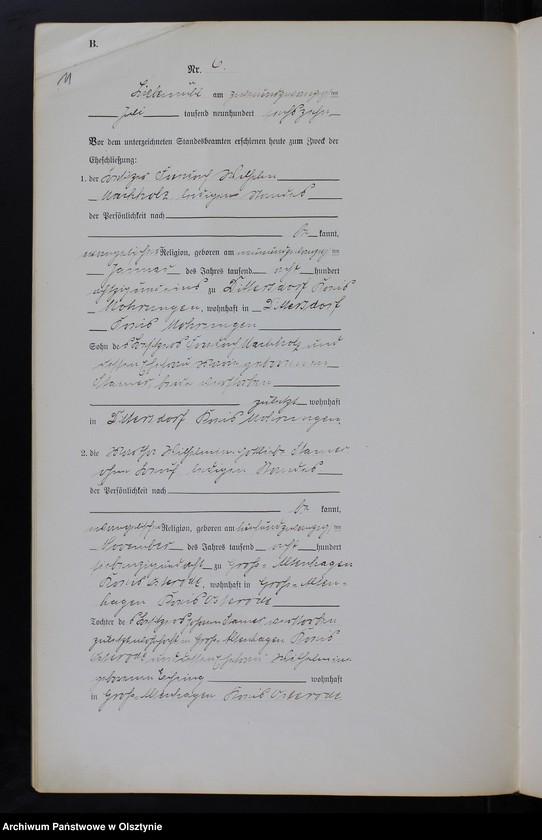 B.
11
Nr. 6.
Liebemühl am zweiundzwanzigsten
Juli tausend neunhundert sechszehn
Vor dem unterzeichneten Standesbeamten erschienen heute zum Zweck der
Eheschließung:
1. der Besitzer Wilhelm
Maihholz ledigen Standes
der Persönlichkeit nach
be kannt,
evangelischer Religion, geboren am neunundzwanzigsten
Januar des Jahres tausend acht hundert
achtzigundeins zu Dittersdorf Kreis
Mohrungen, wohnhaft in Dittersdorf
Kreis Mohrungen
Sohn des Besitzers Maihholz und
dessen Ehefrau geborenen
Stamer, beide verstorben
zuletzt wohnhaft
in Dittersdorf Kreis Mohrungen.
2. die Martha Wilhelmine Gottliebe Stamer
ohne Beruf ledigen Standes
der Persönlichkeit nach
be kannt,
evangelischer Religion, geboren am
November des Jahres tausend acht hundert
siebenzigundacht zu Groß-Altenhagen
Kreis Osterode, wohnhaft in Groß-Alten-
hagen Kreis Osterode
Tochter des Besitzers Johann Stamer verstorben
zuletzt wohnhaft in Groß-Altenhagen Kreis
Osterode und dessen Ehefrau Wilhelmine
geborenen wohnhaft
in Groß-Altenhagen Kreis Osterode
Archiwum Państwowe w Olsztynie